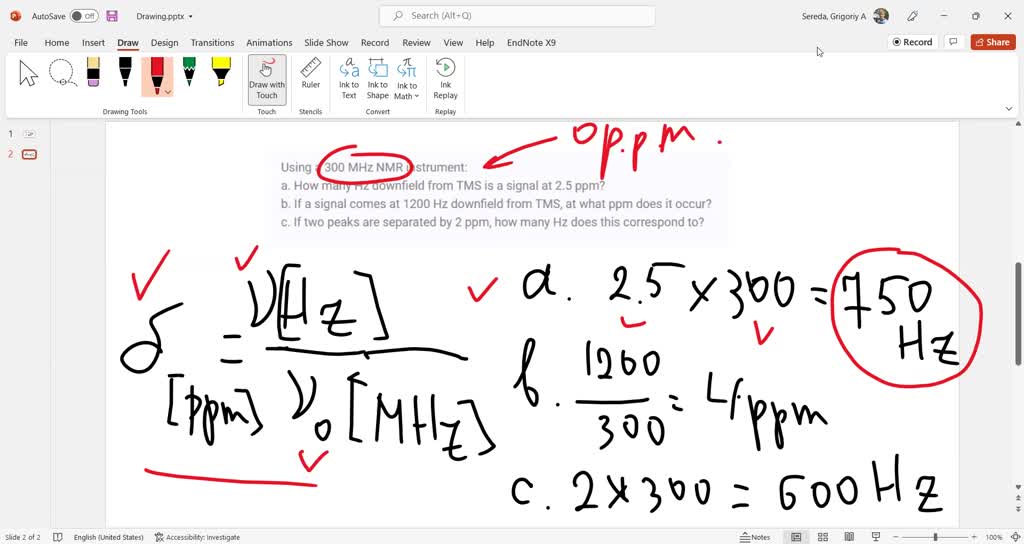 AutoSave Off Drawing.pptx Search (Alt+Q) Sereda, Grigoriy A
File Home Insert Draw Design Transitions Animations Slide Show Record Review View Help EndNote X9 Record Share
Draw with Touch Ruler Ink to Text Ink to Shape Ink to Math Ink Replay
Drawing Tools Touch Stencils Convert Replay
1
2
0 p.p.m.
Using a 300 MHz NMR instrument:
a. How many Hz downfield from TMS is a signal at 2.5 ppm?
b. If a signal comes at 1200 Hz downfield from TMS, at what ppm does it occur?
c. If two peaks are separated by 2 ppm, how many Hz does this correspond to?
δ [ppm] = ν[Hz] / ν₀ [MHz]
a. 2.5 × 300 = 750 Hz
b. 1200 / 300 = 4 ppm
c. 2 × 300 = 600 Hz
Slide 2 of 2 English (United States) Accessibility: Investigate Notes 100%